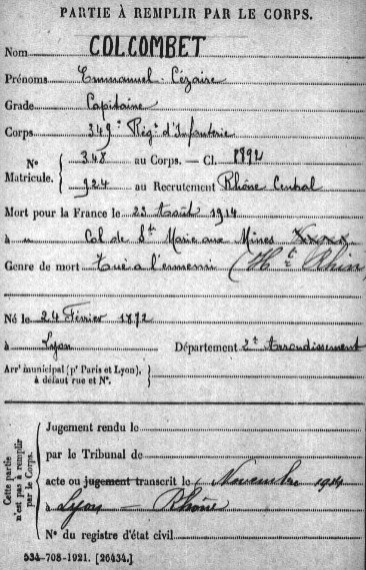 PARTIE À REMPLIR PAR LE CORPS.
Nom COLCOMBET
Prénoms Emmanuel - Cézaire
Grade Capitaine
Corps 349e Régt d'Infanterie
No Matricule. 348 au Corps. — Cl. 1892
924 au Recrutement Rhône Central
Mort pour la France le 23 Août 1914
à Col de Ste Marie aux Mines xxxxx
Genre de mort Tué à l'ennemi (Ht Rhin
Né le 24 Février 1872
à Lyon Département 2t Arrondissement
Arrt municipal (pr Paris et Lyon),
à défaut rue et No.
Cette partie n'est pas à remplir par le Corps.
Jugement rendu le
par le Tribunal de
acte ou jugement transcrit le Novembre 1914
à Lyon — Rhône
No du registre d'état civil
534-708-1921. [26434.]